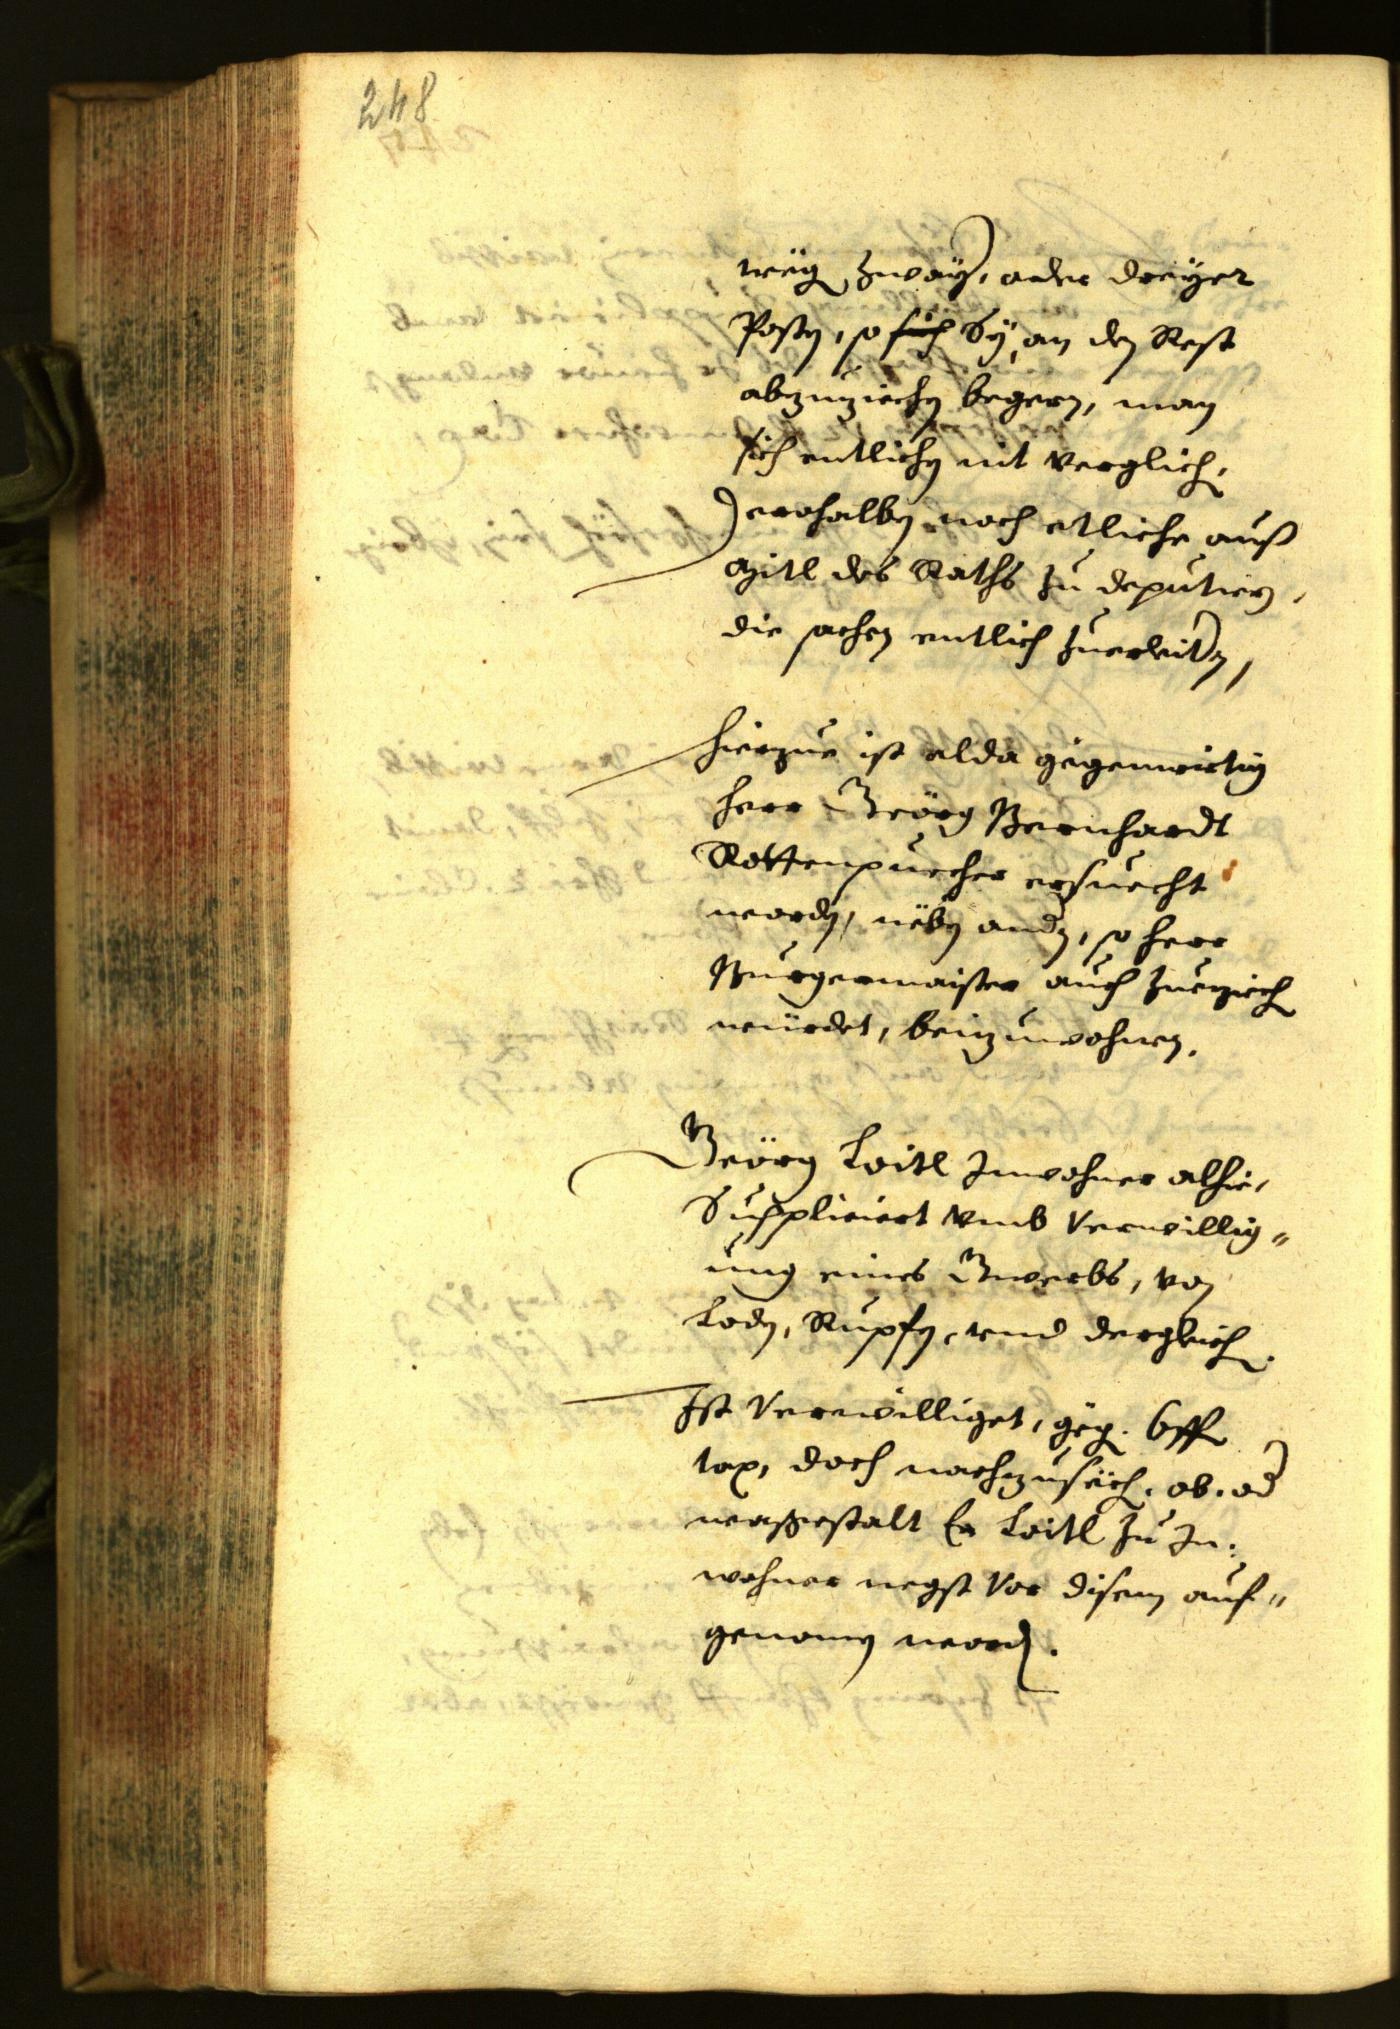 248
weg zwayr, oder dreyer
Posten, so sich Sy, an den Rest
abzuziechen begern, man
sich entlichen nit verglich,
Derohalben noch etliche auß
mitl des Raths zu deputiern,
die sachen entlich zuerleitern,
Hierzue ist alda gegenwirtig
Herr Geörg Bernhardt
Rottenpuecher ersuecht
worden, neben andern, so Herr
Burgermaister auch zueziech
würdet, beizuwohnen.
Geörg Loitl Inwohner alhie,
Suppliciert vmb Verwillig=
ung eines Gwerbs, von
Loden, Rupfen, vnd dergleich.
Ist Verwilliget, geg.
tax, doch nachzusech. ob. od
waßgestalt Er Loitl zu In:
wohner negst Vor disem auf=
genomen word.